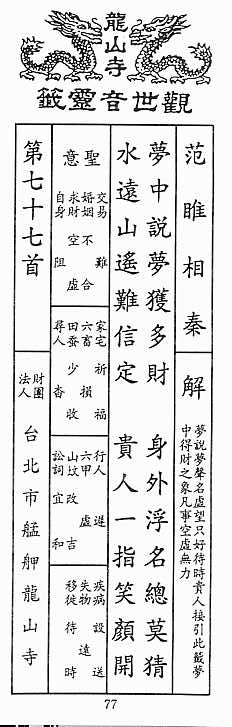 龍山寺
觀世音靈籤
范睢相秦
解
夢說夢聲名虛望只好待時貴人接引此籤夢
中得財之象凡事空虛無力
夢中說夢獲多財 身外浮名總莫猜
水遠山遙難信定 貴人一指笑顏開
聖意
交易 難
婚姻 不合
求財 空虛
自身 阻
家宅 祈福
六畜 損
田蚕 少收
尋人 杳
行人 遲
六甲 虛
山坟 改吉
訟詞 宜和
疾病 設送
失物 遠
移徙 待時
第七十七首
財團法人
台北市艋舺龍山寺
77